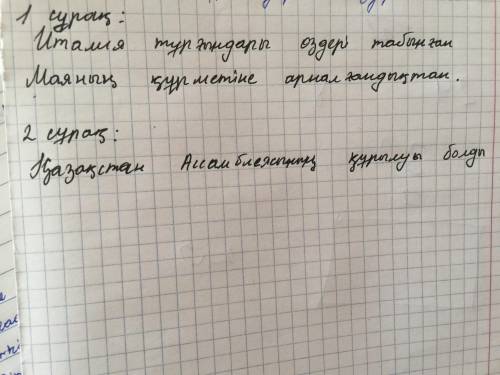 1 сұрақ:
Италия тұрғындары өздері табынған
Маяның құрметіне арналғандықтан.
2 сұрақ:
Қазақстан Ассамблеясының құрылуы болды